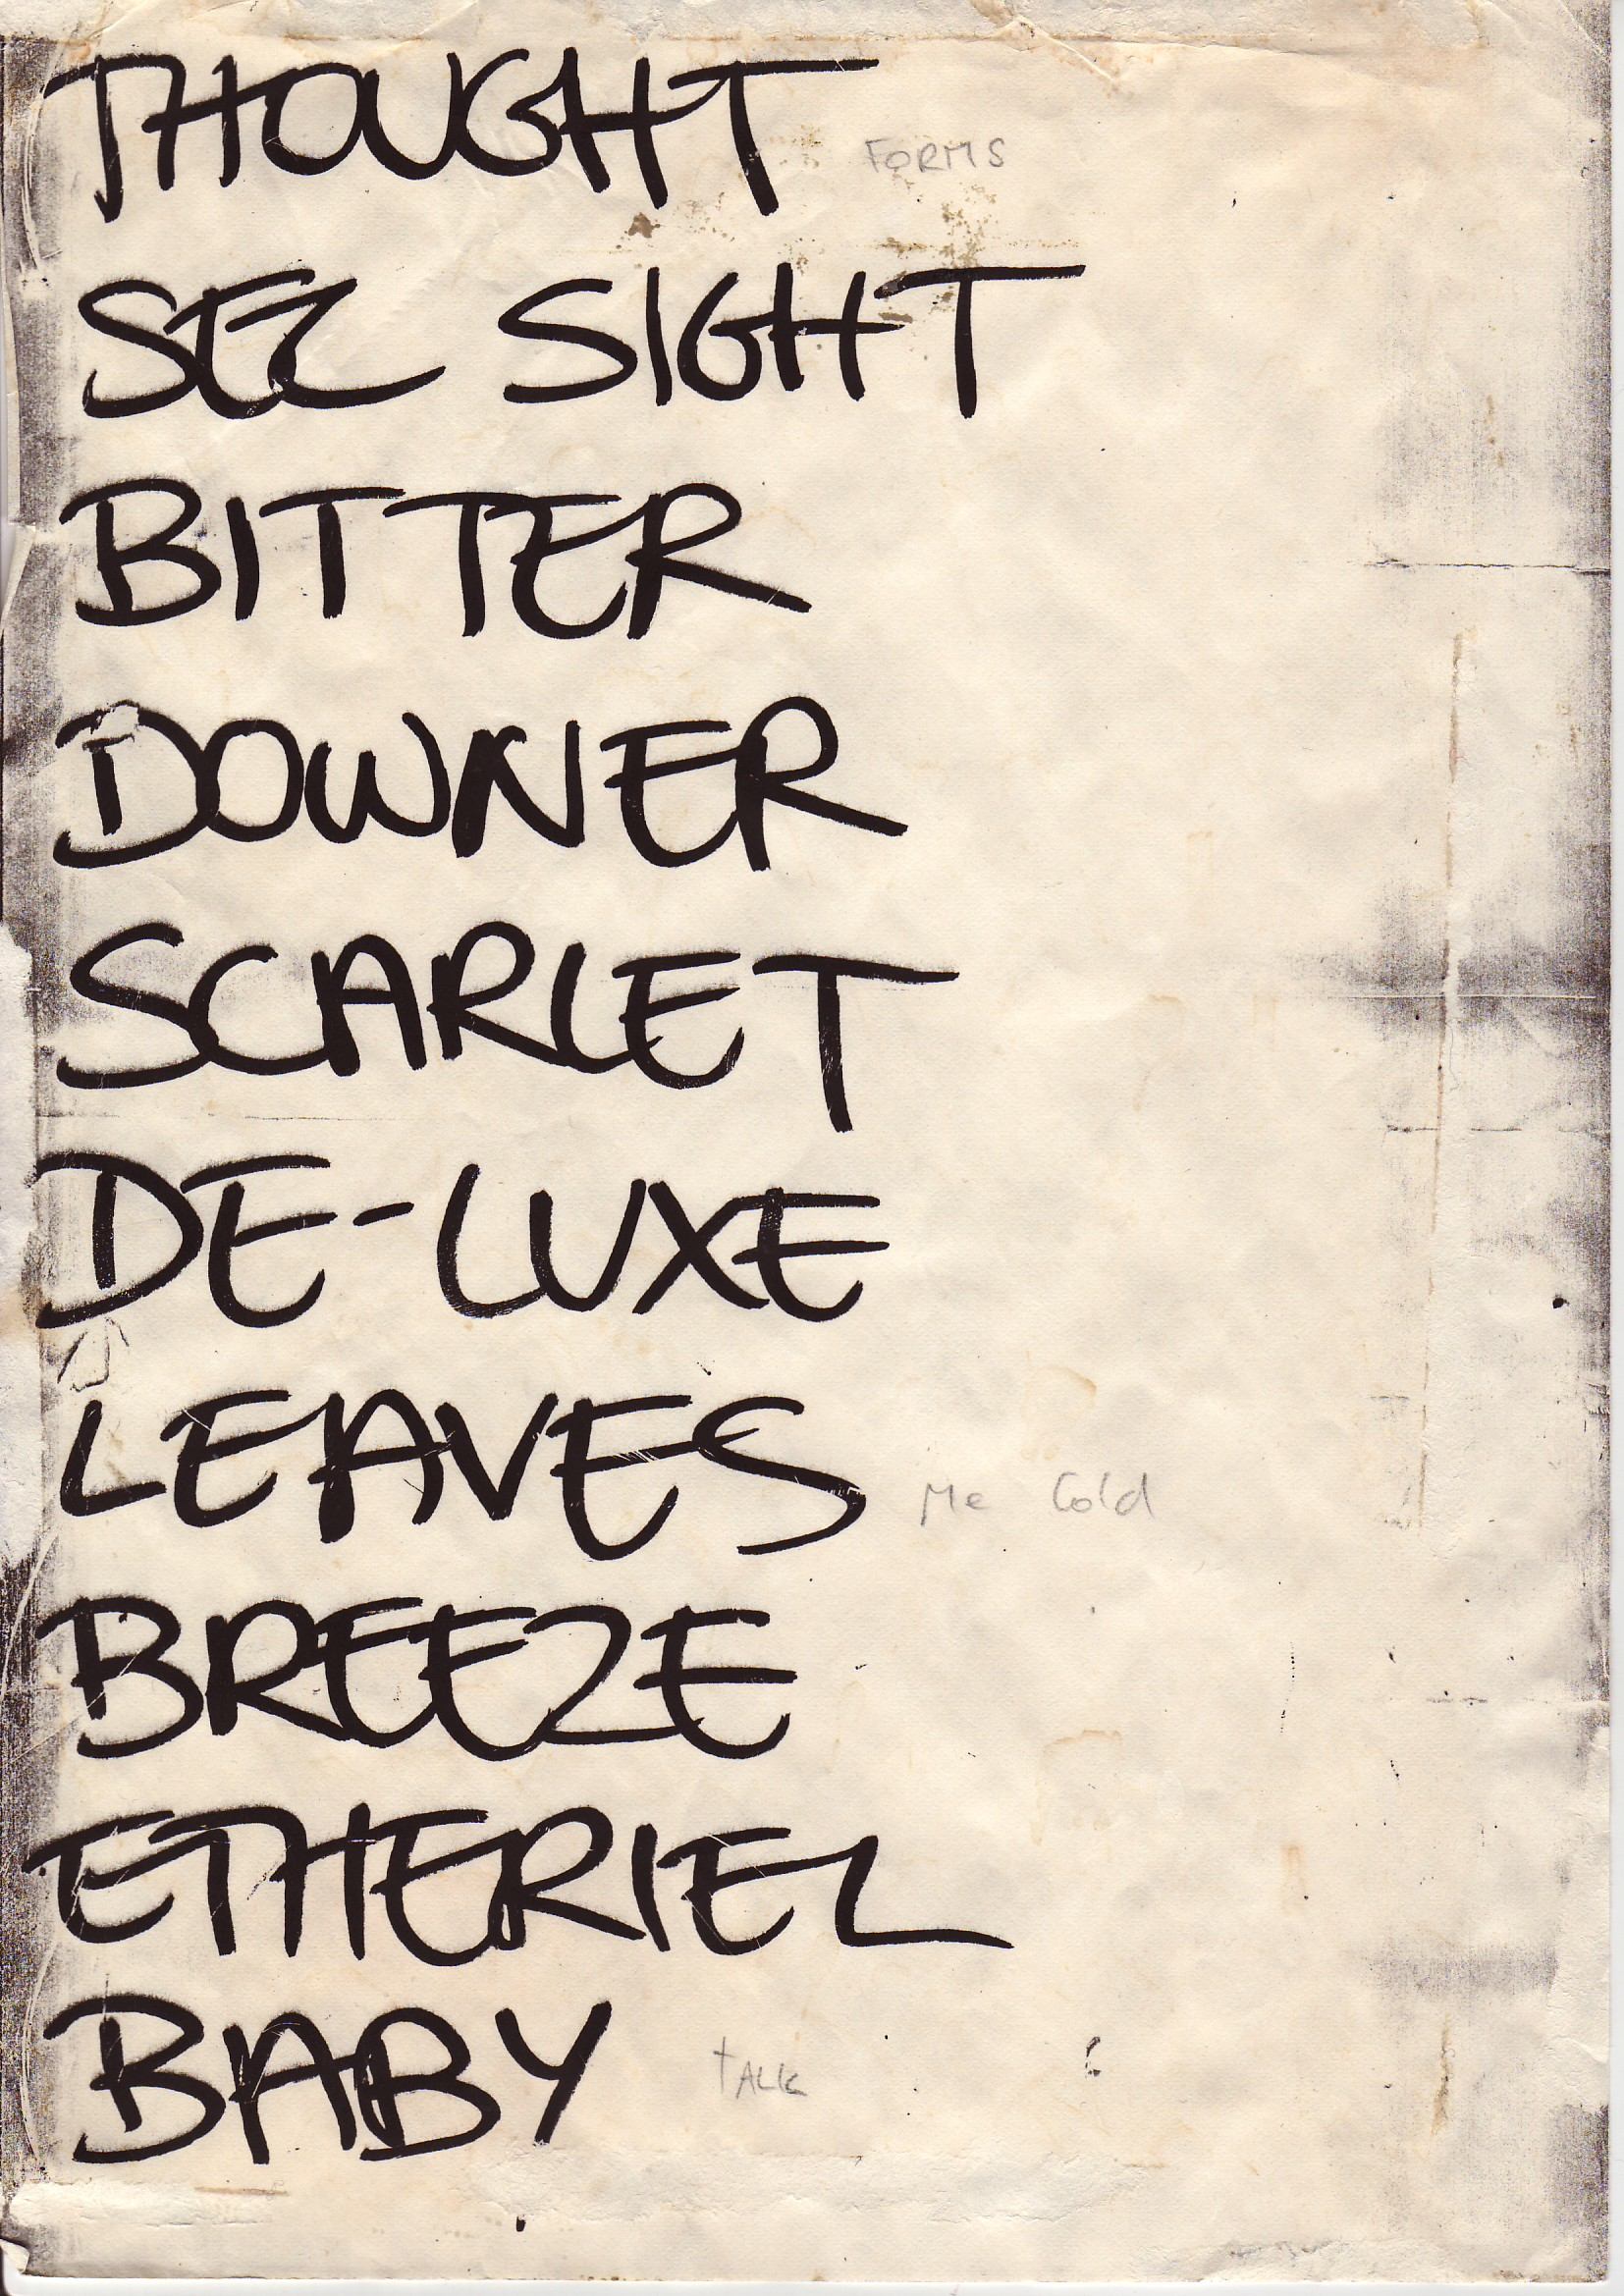 THOUGHT FORMS
SEC SIGHT
BITTER
DOWNER
SCARLET
DE-LUXE
LEAVES Me Cold
BREEZE
ETHERIEL
BABY TALK